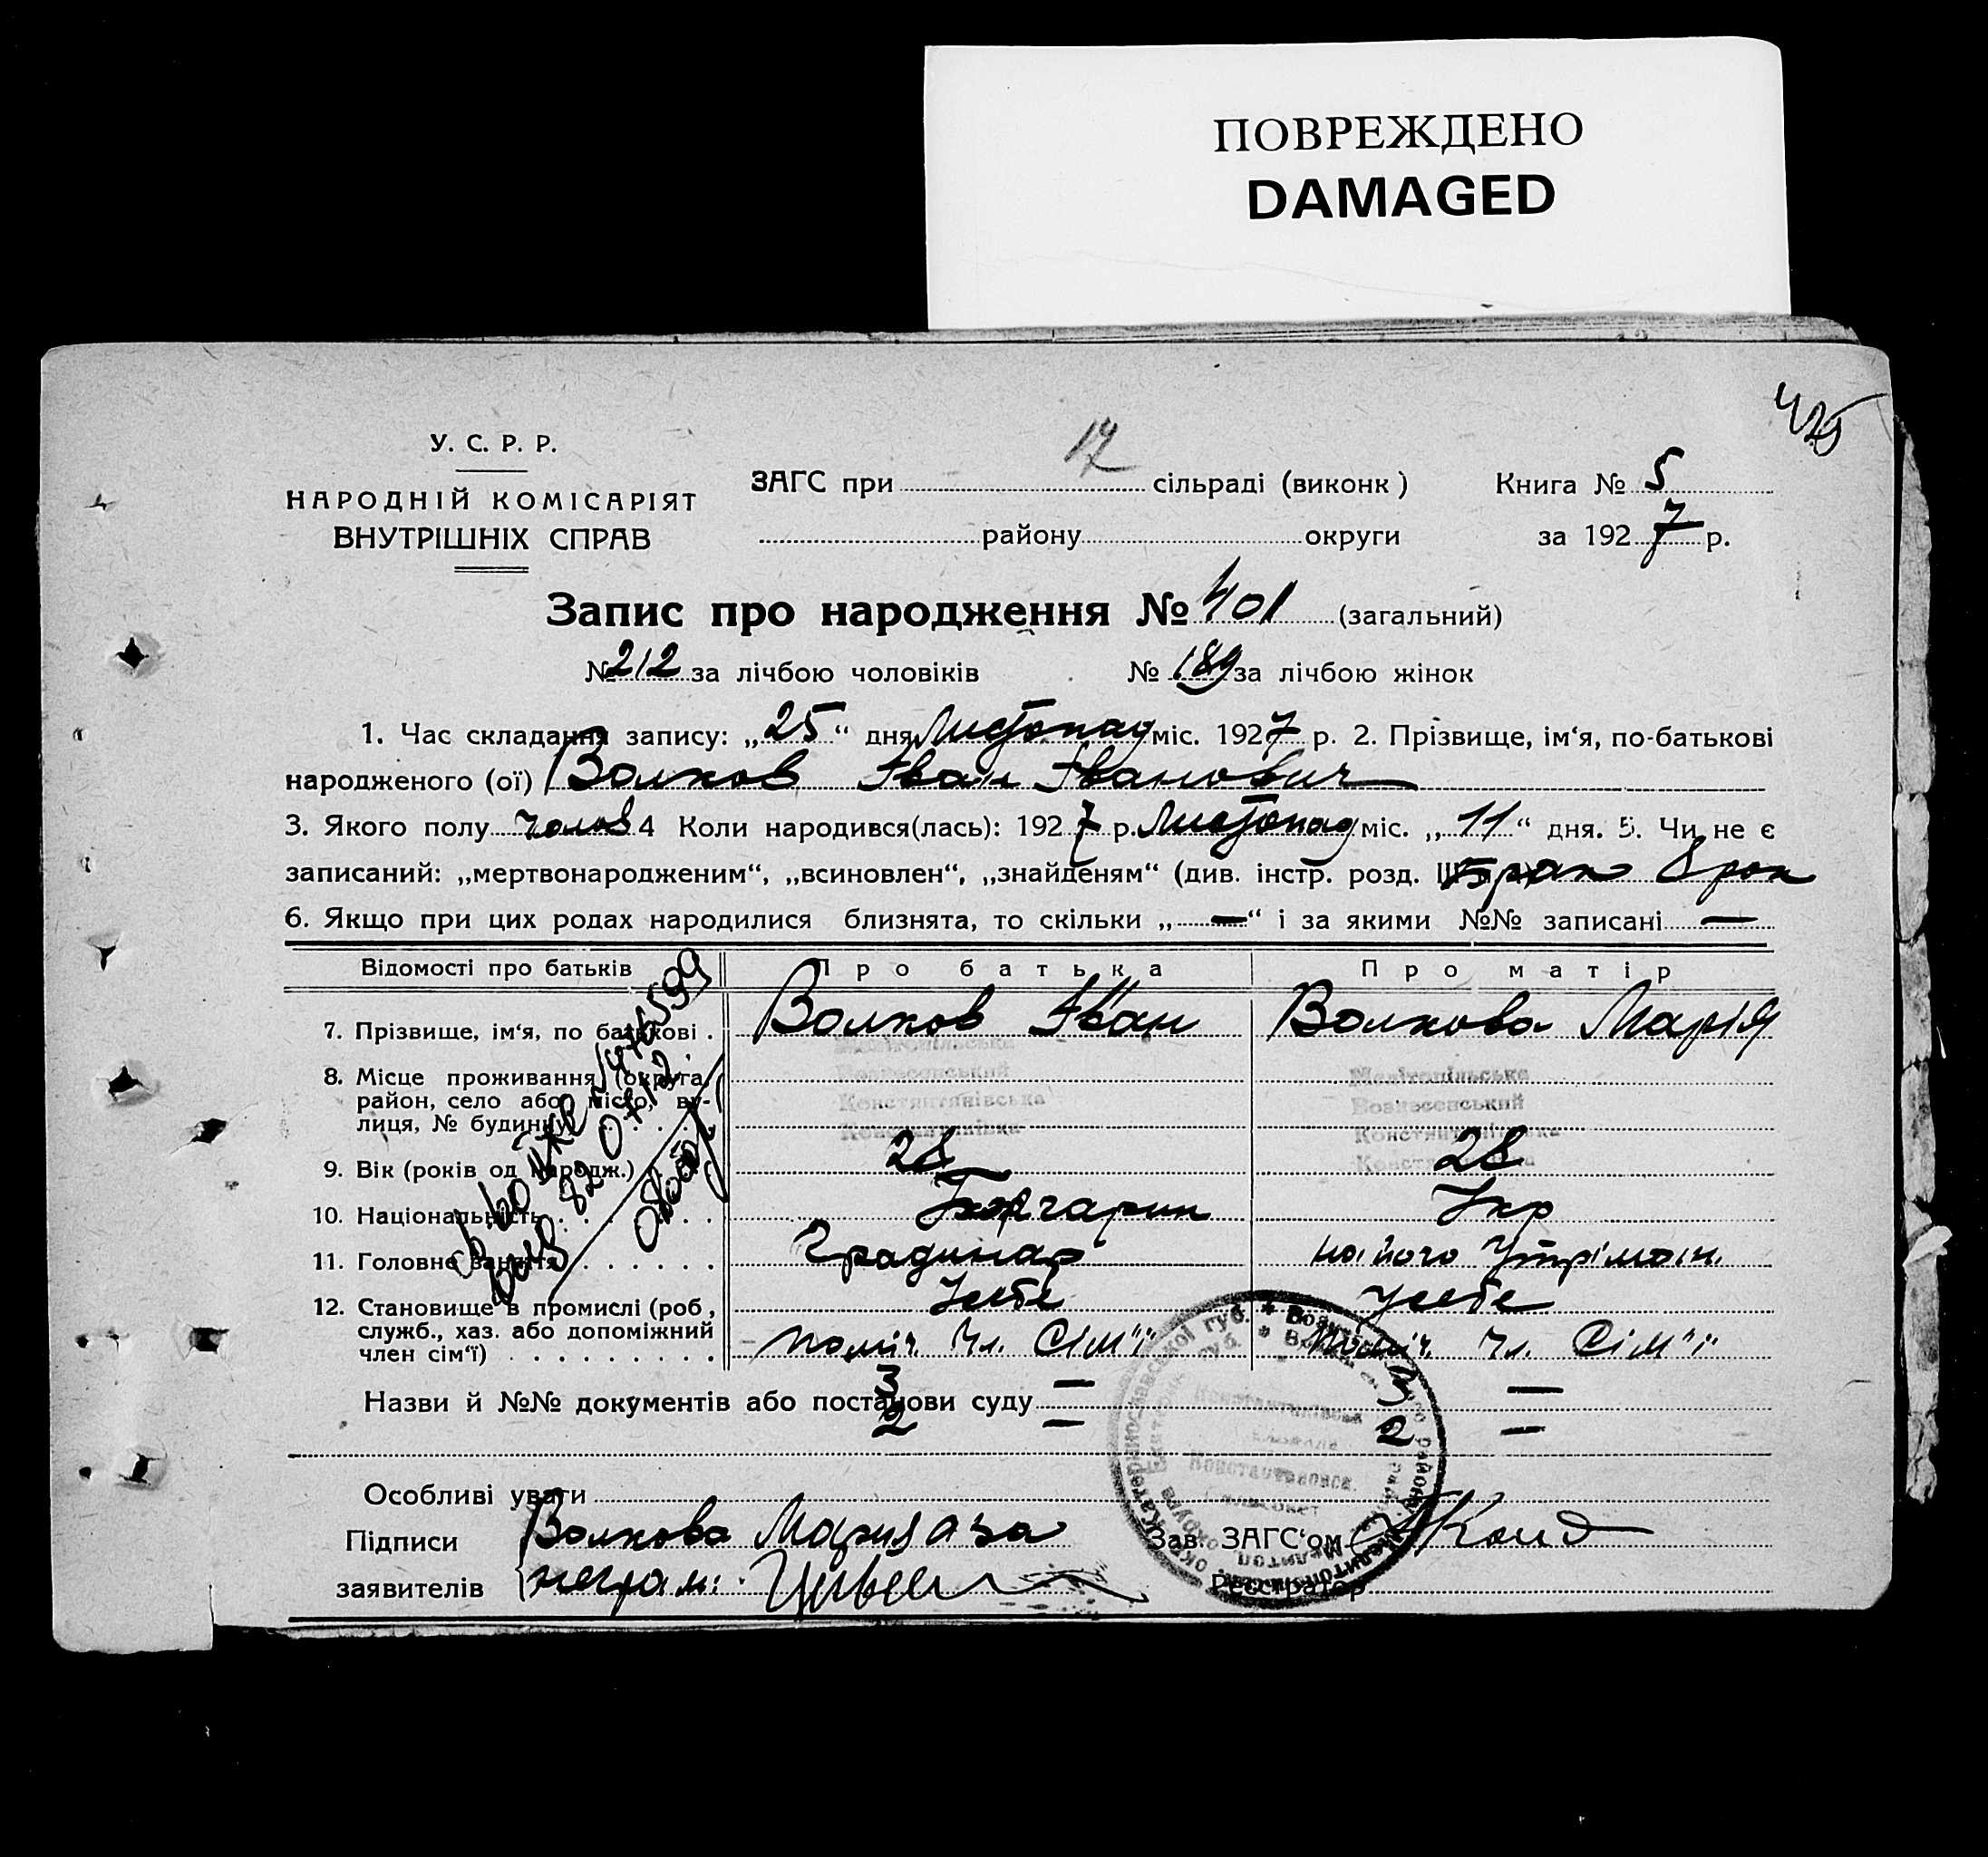 ПОВРЕЖДЕНО
DAMAGED
425
У. С. Р. Р.
НАРОДНІЙ КОМІСАРІЯТ
ВНУТРІШНІХ СПРАВ
17
ЗАГС при сільраді (виконк)
району округи
Книга № 5
за 1927 р.
Запис про народження № 401 (загальний)
№ 212 за лічбою чоловіків № 189 за лічбою жінок
1. Час складання запису: „25“ дня Листопад міс. 1927 р. 2. Прізвище, ім‘я, по-батькові
народженого (ої) Волков Іван Іванович
3. Якого полу чолов 4 Коли народився(лась): 1927 р. Листопад міс. „11“ дня. 5. Чи не є
записаний: „мертвонародженим“, „всиновлен“, „знайденям“ (див. інстр. розд. III
6. Якщо при цих родах народилися близнята, то скільки „—“ і за якими №№ записані —
Відомості про батьків Про батька Про матір
7. Прізвище, ім‘я, по батькові . Волков Іван Волкова Марія
8. Місце проживання (округа,
район, село або місто, ву-
лиця, № будинку)
Мелітопільська
Вознесенський
Констянтинівська
Констянтинівка
Мелітопільська
Вознесенський
Констянтинівська
Констянтинівка
9. Вік (років од народж.) 28 28
10. Національність Болгарин Укр
11. Головне заняття Градинар на його утріман.
12. Становище в промислі (роб.,
служб., хаз. або допоміжний
член сім‘ї)
у себе у себе
поміч. чл. сім'ї поміч. чл. сім'ї
3 — 3 —
Назви й №№ документів або постанови суду
2 — 2 —
Особливі уваги
Підписи
заявителів
Волкова Мария а за
неграм.
Зав. ЗАГС‘ом
Реєстратор